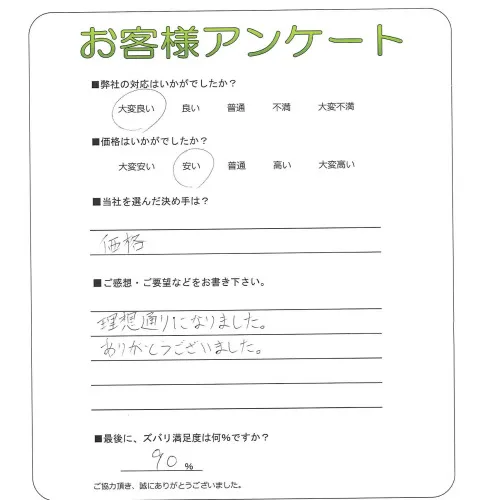 お客様アンケート
■弊社の対応はいかがでしたか？
大変良い　良い　普通　不満　大変不満
■価格はいかがでしたか？
大変安い　安い　普通　高い　大変高い
■当社を選んだ決め手は？
価格
■ご感想・ご要望などをお書き下さい。
理想通りになりました。
ありがとうございました。
■最後に、ズバリ満足度は何％ですか？
90 ％
ご協力頂き、誠にありがとうございました。